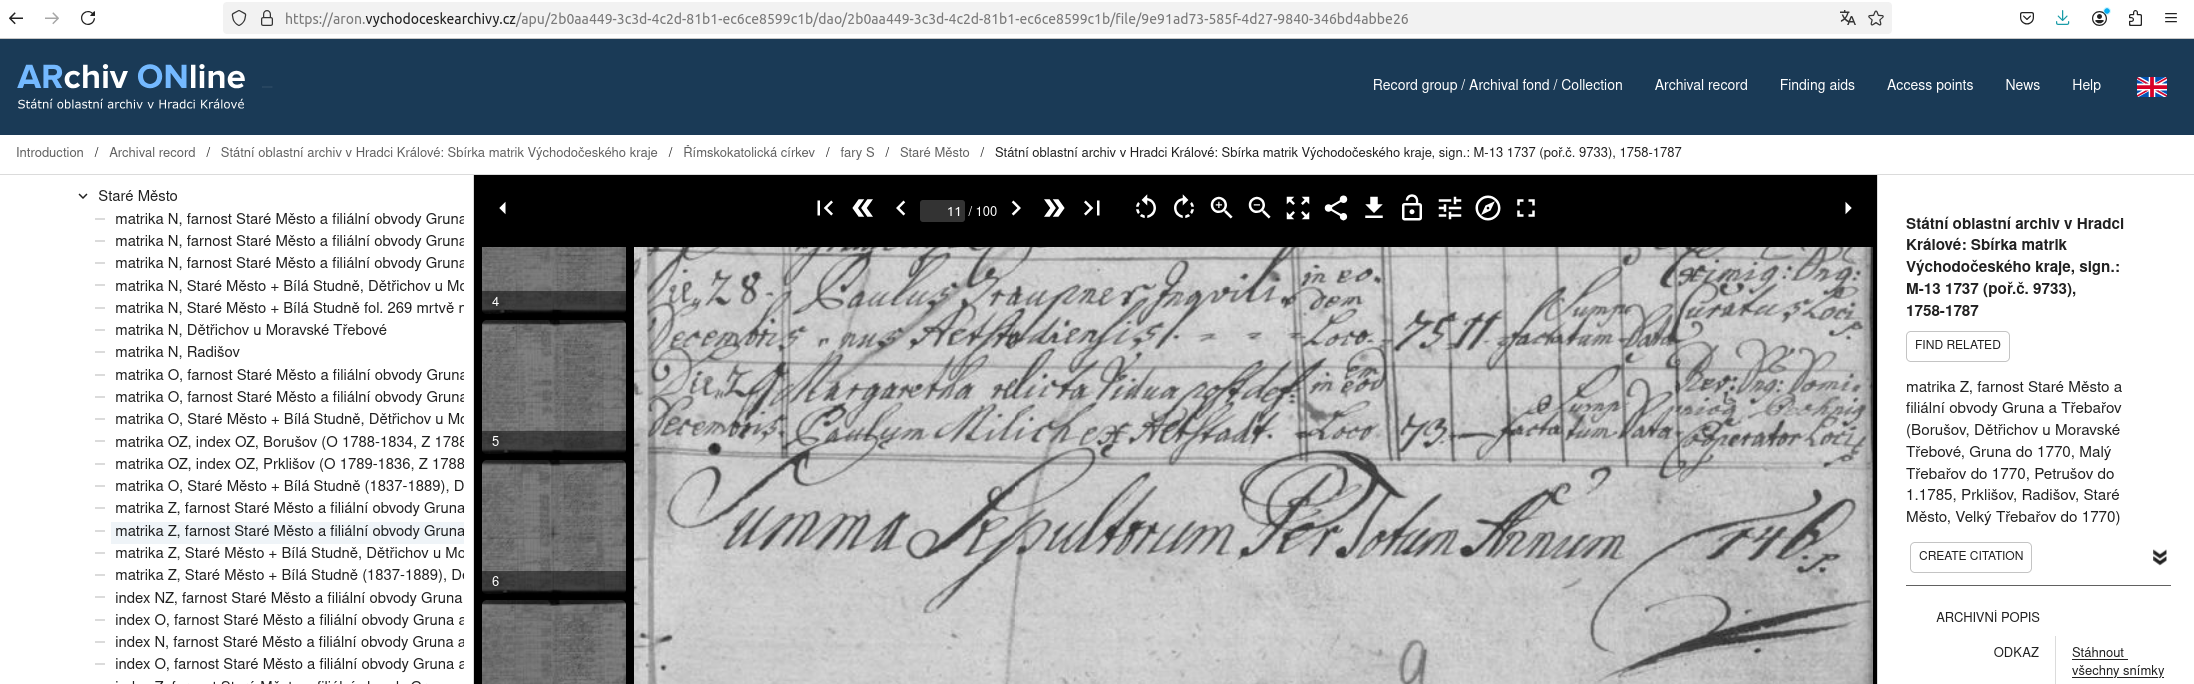 https://aron.vychodoceskearchivy.cz/apu/2b0aa449-3c3d-4c2d-81b1-ec6ce8599c1b/dao/2b0aa449-3c3d-4c2d-81b1-ec6ce8599c1b/file/9e91ad73-585f-4d27-9840-346bd4abbe26
ARchiv ONline
Státní oblastní archiv v Hradci Králové
Record group / Archival fond / Collection
Archival record
Finding aids
Access points
News
Help
Introduction / Archival record / Státní oblastní archiv v Hradci Králové: Sbírka matrik Východočeského kraje / Římskokatolická církev / fary S / Staré Město / Státní oblastní archiv v Hradci Králové: Sbírka matrik Východočeského kraje, sign.: M-13 1737 (poř.č. 9733), 1758-1787
Staré Město
matrika N, farnost Staré Město a filiální obvody Gruna
matrika N, farnost Staré Město a filiální obvody Gruna
matrika N, farnost Staré Město a filiální obvody Gruna
matrika N, Staré Město + Bílá Studně, Dětřichov u Mo
matrika N, Staré Město + Bílá Studně fol. 269 mrtvě r
matrika N, Dětřichov u Moravské Třebové
matrika N, Radišov
matrika O, farnost Staré Město a filiální obvody Gruna
matrika O, farnost Staré Město a filiální obvody Gruna
matrika O, Staré Město + Bílá Studně, Dětřichov u Mo
matrika OZ, index OZ, Borušov (O 1788-1834, Z 1788
matrika OZ, index OZ, Prklišov (O 1789-1836, Z 1788
matrika O, Staré Město + Bílá Studně (1837-1889), D
matrika Z, farnost Staré Město a filiální obvody Gruna
matrika Z, farnost Staré Město a filiální obvody Gruna
matrika Z, Staré Město + Bílá Studně, Dětřichov u Mo
matrika Z, Staré Město + Bílá Studně (1837-1889), De
index NZ, farnost Staré Město a filiální obvody Gruna
index O, farnost Staré Město a filiální obvody Gruna a
index N, farnost Staré Město a filiální obvody Gruna a
index O, farnost Staré Město a filiální obvody Gruna a
11 / 100
4
5
6
Die 28. Paulus Graupner Inquili- in eo- Eximig: Dng:
dem Sump Curatus Loci
Decembris nus Altstadiensis. Loco. 75 11 factatum Data
Die 29 Margaretha relicta Vidua post def: in eod Rev: Dng: Domi-
Sump
Decembris. Paulum Milich ex Altstadt. Loco 73 factatum Data Cooperator Loci
Summa Sepultorum Per Totum Annum 146
9
Státní oblastní archiv v Hradci
Králové: Sbírka matrik
Východočeského kraje, sign.:
M-13 1737 (poř.č. 9733),
1758-1787
FIND RELATED
matrika Z, farnost Staré Město a
filiální obvody Gruna a Třebařov
(Borušov, Dětřichov u Moravské
Třebové, Gruna do 1770, Malý
Třebařov do 1770, Petrušov do
1.1785, Prklišov, Radišov, Staré
Město, Velký Třebařov do 1770)
CREATE CITATION
ARCHIVNÍ POPIS
ODKAZ
Stáhnout
všechny snímky